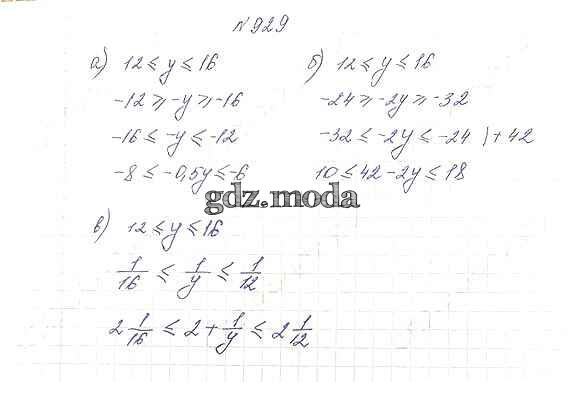 №929
а) 12 ≤ y ≤ 16
-12 ≥ -y ≥ -16
-16 ≤ -y ≤ -12
-8 ≤ -0,5y ≤ -6
б) 12 ≤ y ≤ 16
-24 ≥ -2y ≥ -32
-32 ≤ -2y ≤ -24 )+ 42
10 ≤ 42 - 2y ≤ 18
gdz.moda
в) 12 ≤ y ≤ 16
1/16 ≤ 1/y ≤ 1/12
2 1/16 ≤ 2 + 1/y ≤ 2 1/12